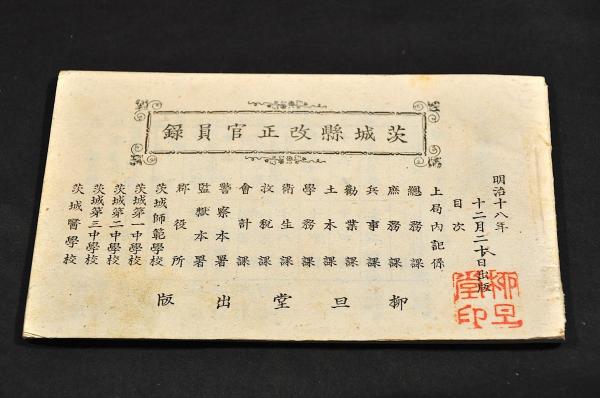 茨城縣改正官員録
明治十八年
十二月二十八日出版
目次
上局內記係
總務課
庶務課
兵事課
勸業課
土木課
學務課
衛生課
收税課
會計課
警察本署
監獄本署
郡役所
茨城師範學校
茨城第一中學校
茨城第二中學校
茨城第三中學校
茨城醫學校
柳旦堂出版
柳旦堂印